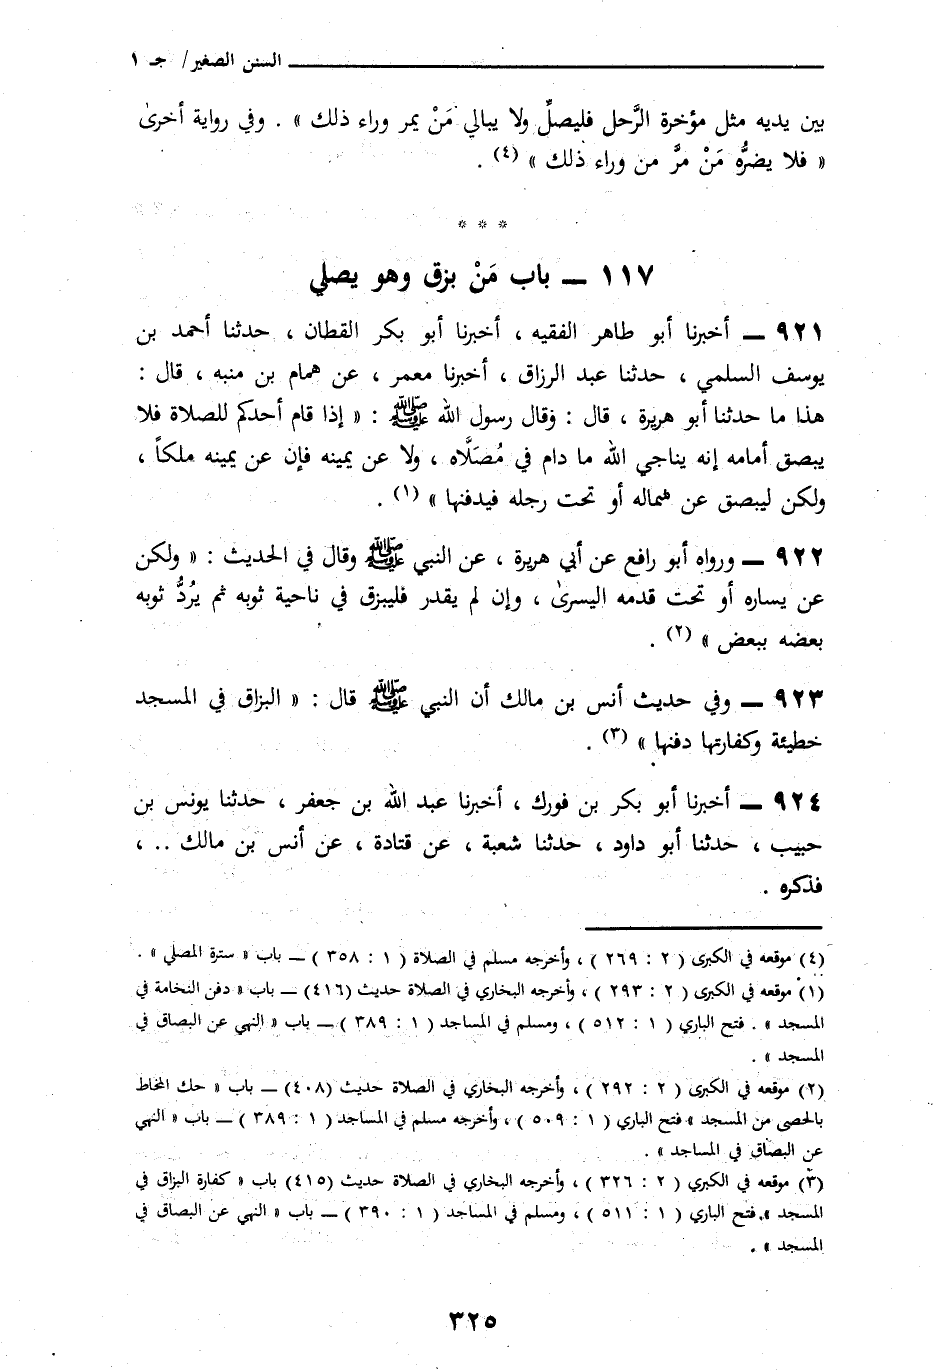 السنن الصغير / جـ ١
بين يديه مثل مؤخرة الرَّحل فليصلِّ ولا يبالي مَنْ يمر وراء ذلك » . وفي رواية أخرىٰ
« فلا يضرُّه مَنْ مرَّ من وراء ذلك » (٤) .
* * *
١١٧ ــ باب مَنْ بزق وهو يصلي
٩٢١ ــ أخبرنا أبو طاهر الفقيه ، أخبرنا أبو بكر القطان ، حدثنا أحمد بن
يوسف السلمي ، حدثنا عبد الرزاق ، أخبرنا معمر ، عن همام بن منبه ، قال :
هذا ما حدثنا أبو هريرة ، قال : وقال رسول الله ﷺ : « إذا قام أحدكم للصلاة فلا
يبصق أمامه إنه يناجي الله ما دام في مُصَلَّاه ، ولا عن يمينه فإن عن يمينه ملكاً ،
ولكن ليبصق عن شماله أو تحت رجله فيدفنها » (١) .
٩٢٢ ــ ورواه أبو رافع عن أبي هريرة ، عن النبي ﷺ وقال في الحديث : « ولكن
عن يساره أو تحت قدمه اليسرىٰ ، وإن لم يقدر فليبزق في ناحية ثوبه ثم يرُدُّ ثوبه
بعضه ببعض » (٢) .
٩٢٣ ــ وفي حديث أنس بن مالك أن النبي ﷺ قال : « البزاق في المسجد
خطيئة وكفارتها دفنها » (٣) .
٩٢٤ ــ أخبرنا أبو بكر بن فورك ، أخبرنا عبد الله بن جعفر ، حدثنا يونس بن
حبيب ، حدثنا أبو داود ، حدثنا شعبة ، عن قتادة ، عن أنس بن مالك .. ،
فذكره .
(٤) موقعه في الكبرى ( ٢ : ٢٦٩ ) ، وأخرجه مسلم في الصلاة ( ١ : ٣٥٨ ) ــ باب « سترة المصلي » .
(١) موقعه في الكبرى ( ٢ : ٢٩٣ ) ، وأخرجه البخاري في الصلاة حديث (٤١٦) ــ باب « دفن النخامة في
المسجد » . فتح الباري ( ١ : ٥١٢ ) ، ومسلم في المساجد ( ١ : ٣٨٩ ) ــ باب « النهي عن البصاق في
المسجد » .
(٢) موقعه في الكبرى ( ٢ : ٢٩٢ ) ، وأخرجه البخاري في الصلاة حديث (٤٠٨) ــ باب « حك المخاط
بالحصى من المسجد » فتح الباري ( ١ : ٥٠٩ ) ، وأخرجه مسلم في المساجد ( ١ : ٣٨٩ ) ــ باب « النهي
عن البصاق في المساجد » .
(٣) موقعه في الكبري ( ٢ : ٣٢٦ ) ، وأخرجه البخاري في الصلاة حديث (٤١٥) باب « كفارة البزاق في
المسجد » . فتح الباري ( ١ : ٥١١ ) ، ومسلم في المساجد ( ١ : ٣٩٠ ) ــ باب « النهي عن البصاق في
المسجد » .
٣٢٥